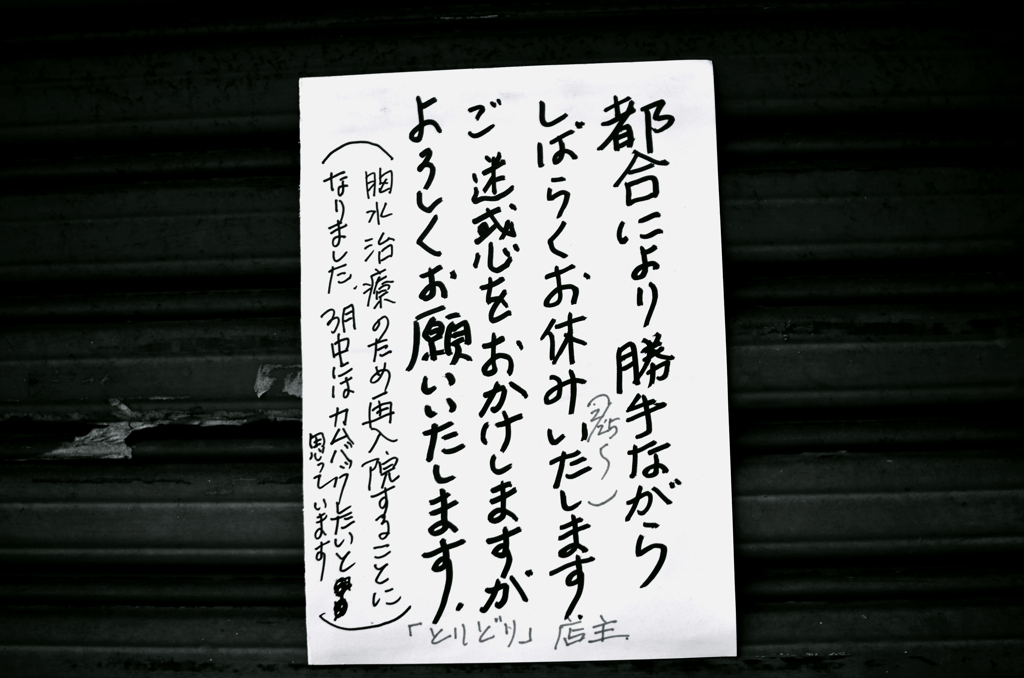 都合により勝手ながら
しばらくお休みいたします.
(2/25〜)
ご迷惑をおかけしますが
よろしくお願いいたします.
(胸水治療のため再入院することに
なりました. 3月中にはカムバックしたいと
思っています)
「とりどり」店主